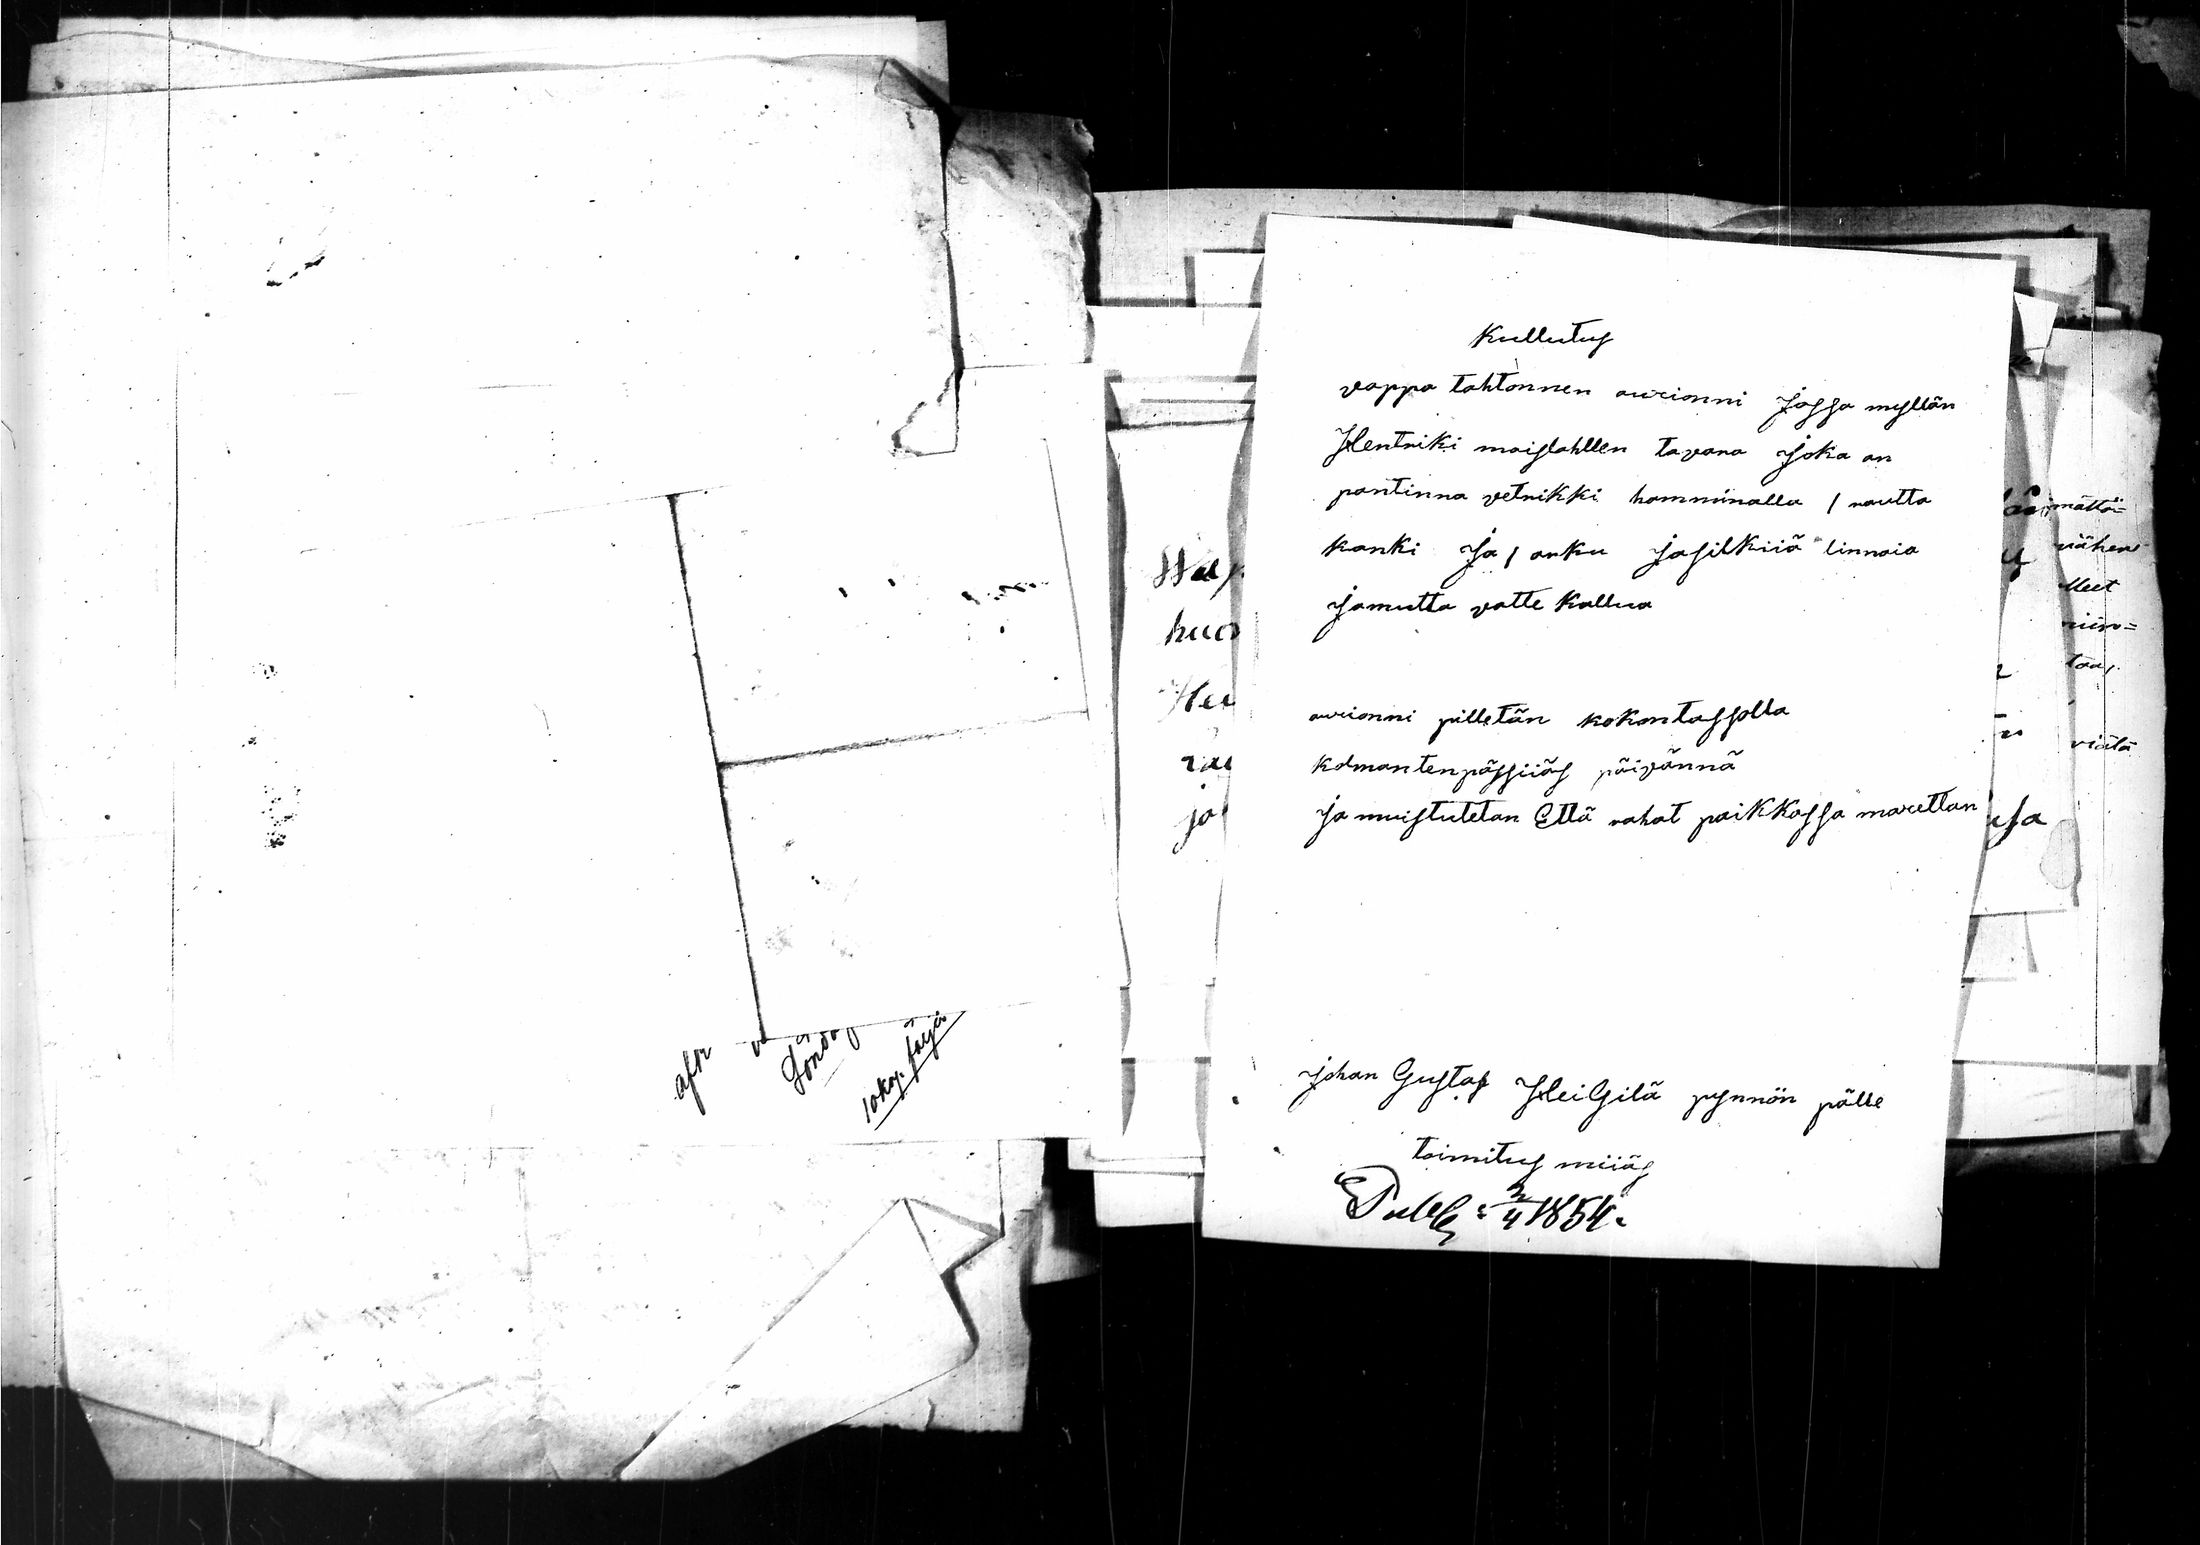 Kullutus
vappa tahtonnen auxionni jossa myllän
Hentriki maislahllen tavara joka on
pantinna vetrikki homminalla 1 rautta
kanki ja 1 arku ja silkiiä linnaia
ja mutta vatte kallua
auxionni pilletän kokontassolla
kolmantenpässiiäs päivännä
ja muistutetan Että rahat paikkassa maxettan
Johan Gustaf HeiGilä pynnön pälle
toimitus miiäs
Publ: 2/4 1854.
Söndag
10 kop. färja
Wap
huo
Hei
rau
ja
usa
mättö=
vähen
lleet
niin=
viälä